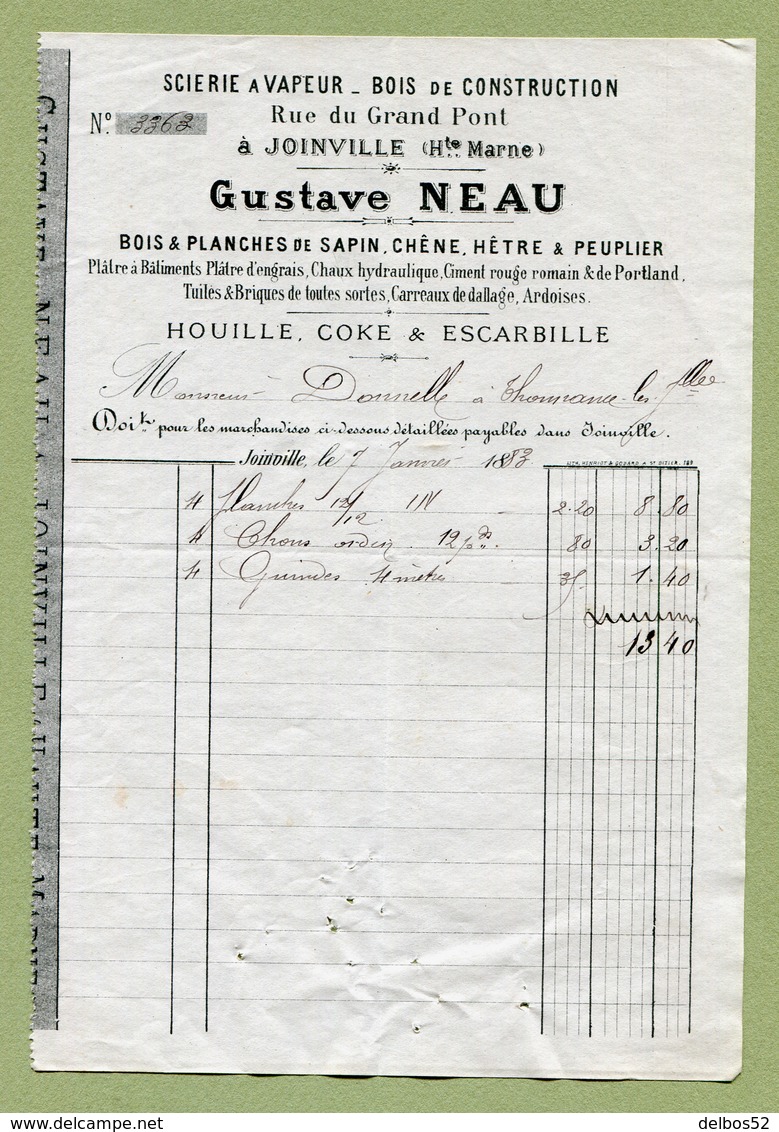 SCIERIE A VAPEUR _ BOIS DE CONSTRUCTION
Rue du Grand Pont
Nº 3363
à JOINVILLE (Hte Marne)
Gustave NEAU
BOIS & PLANCHES DE SAPIN, CHÊNE, HÊTRE & PEUPLIER
Plâtre à Bâtiments Plâtre d'engrais, Chaux hydraulique, Ciment rouge romain & de Portland,
Tuiles & Briques de toutes sortes, Carreaux de dallage, Ardoises.
HOUILLE, COKE & ESCARBILLE
Monsieur Donnelle à Thonnance-les-
Doit pour les marchandises ci-dessous détaillées payables dans Joinville.
Joinville, le 7 Janvier 1883
LITH. HENRIOT & GODARD A ST DIZIER. 789
4 Planches 12/12 2.20 8.80
4 12 80 3.20
4 4 mètres 35 1.40
13 40
delcampe.net
delbos52